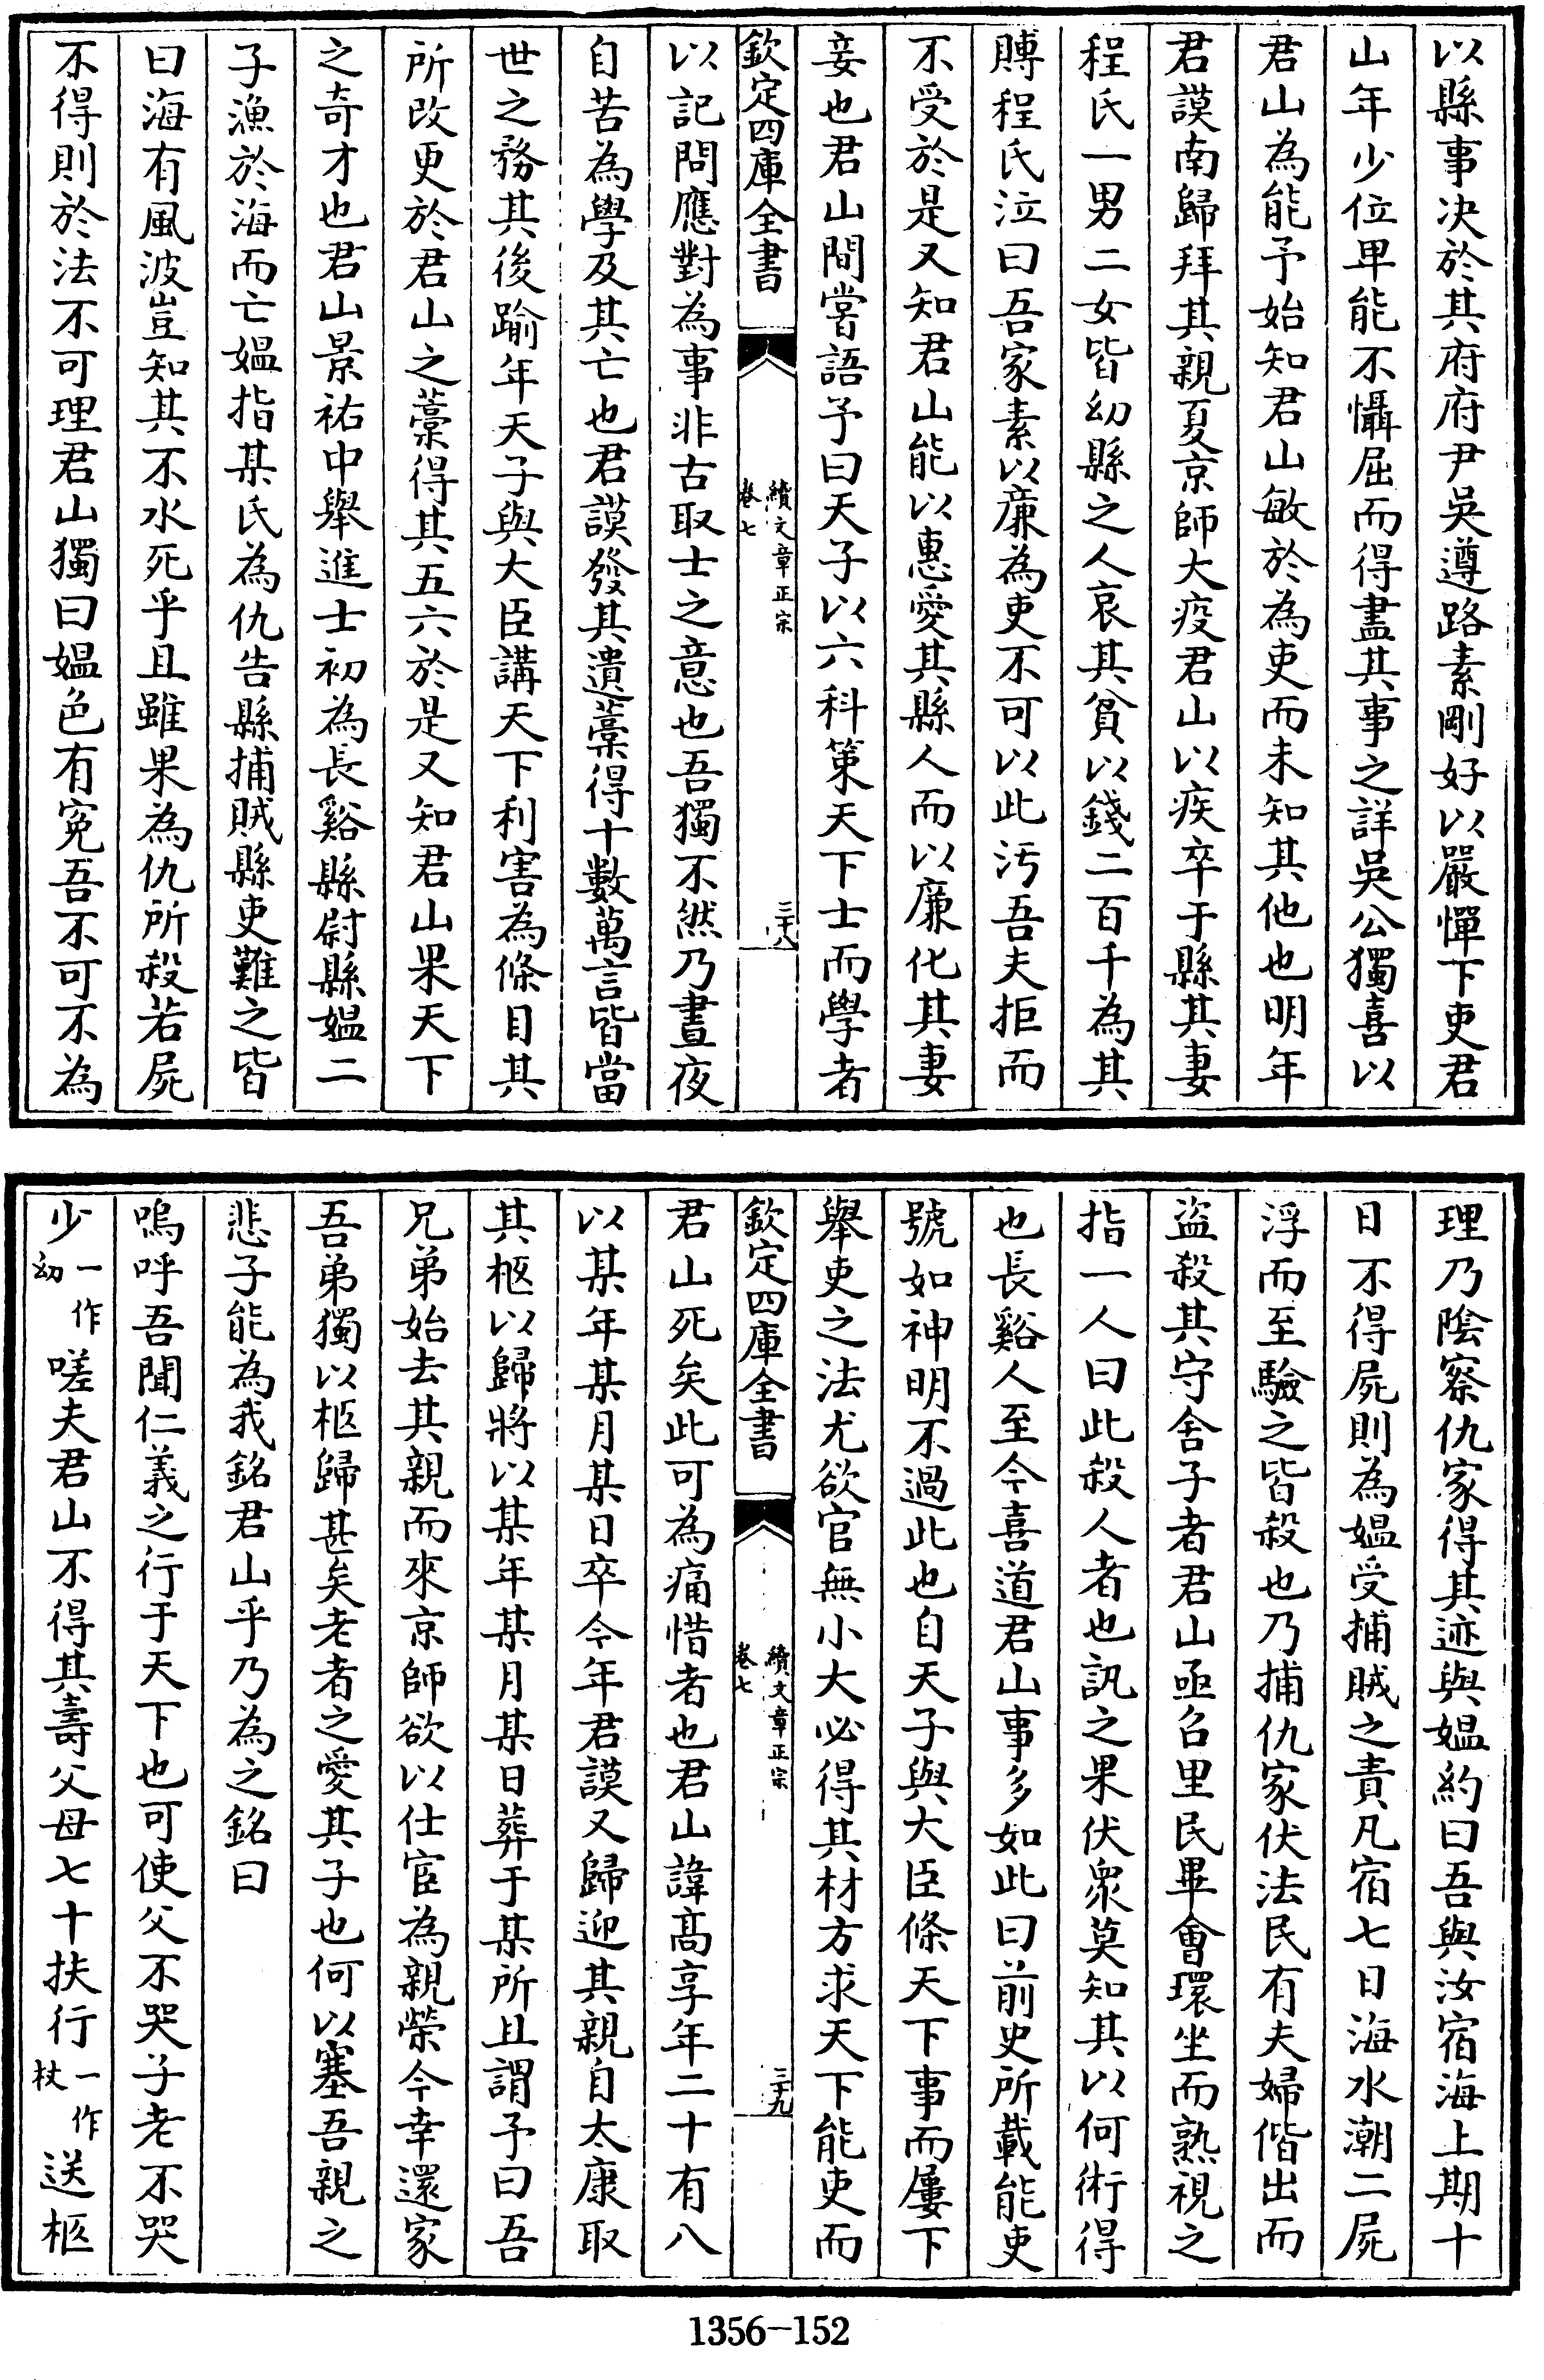 以縣事决於其府府尹吳遵路素剛好以嚴憚下吏君
山年少位卑能不懾屈而得盡其事之詳吳公獨喜以
君山為能予始知君山敏於為吏而未知其他也明年
君謨南歸拜其親夏京師大疫君山以疾卒于縣其妻
程氏一男二女皆幼縣之人哀其貧以錢二百千為其
賻程氏泣曰吾家素以廉為吏不可以此汚吾夫拒而
不受於是又知君山能以惠愛其縣人而以廉化其妻
妾也君山間嘗語予曰天子以六科策天下士而學者
欽定四庫全書
續文章正宗
卷七
三十八
以記問應對為事非古取士之意也吾獨不然乃晝夜
自苦為學及其亡也君謨發其遺藁得十數萬言皆當
世之務其後踰年天子與大臣講天下利害為條目其
所改更於君山之藁得其五六於是又知君山果天下
之奇才也君山景祐中舉進士初為長谿縣尉縣媼二
子漁於海而亡媼指某氏為仇告縣捕賊縣吏難之皆
曰海有風波豈知其不水死乎且雖果為仇所殺若屍
不得則於法不可理君山獨曰媼色有寃吾不可不為
理乃陰察仇家得其迹與媼約曰吾與汝宿海上期十
日不得屍則為媼受捕賊之責凡宿七日海水潮二屍
浮而至驗之皆殺也乃捕仇家伏法民有夫婦偕出而
盜殺其守舍子者君山亟召里民畢會環坐而熟視之
指一人曰此殺人者也訊之果伏衆莫知其以何術得
也長谿人至今喜道君山事多如此曰前史所載能吏
號如神明不過此也自天子與大臣條天下事而屢下
舉吏之法尤欲官無小大必得其材方求天下能吏而
欽定四庫全書
續文章正宗
卷七
三十九
君山死矣此可為痛惜者也君山諱高享年二十有八
以某年某月某日卒今年君謨又歸迎其親自太康取
其柩以歸將以某年某月某日葬于某所且謂予曰吾
兄弟始去其親而來京師欲以仕宦為親榮今幸還家
吾弟獨以柩歸甚矣老者之愛其子也何以塞吾親之
悲子能為我銘君山乎乃為之銘曰
嗚呼吾聞仁義之行于天下也可使父不哭子老不哭
少一作幼嗟夫君山不得其壽父母七十扶行一作杖送柩
1356-152